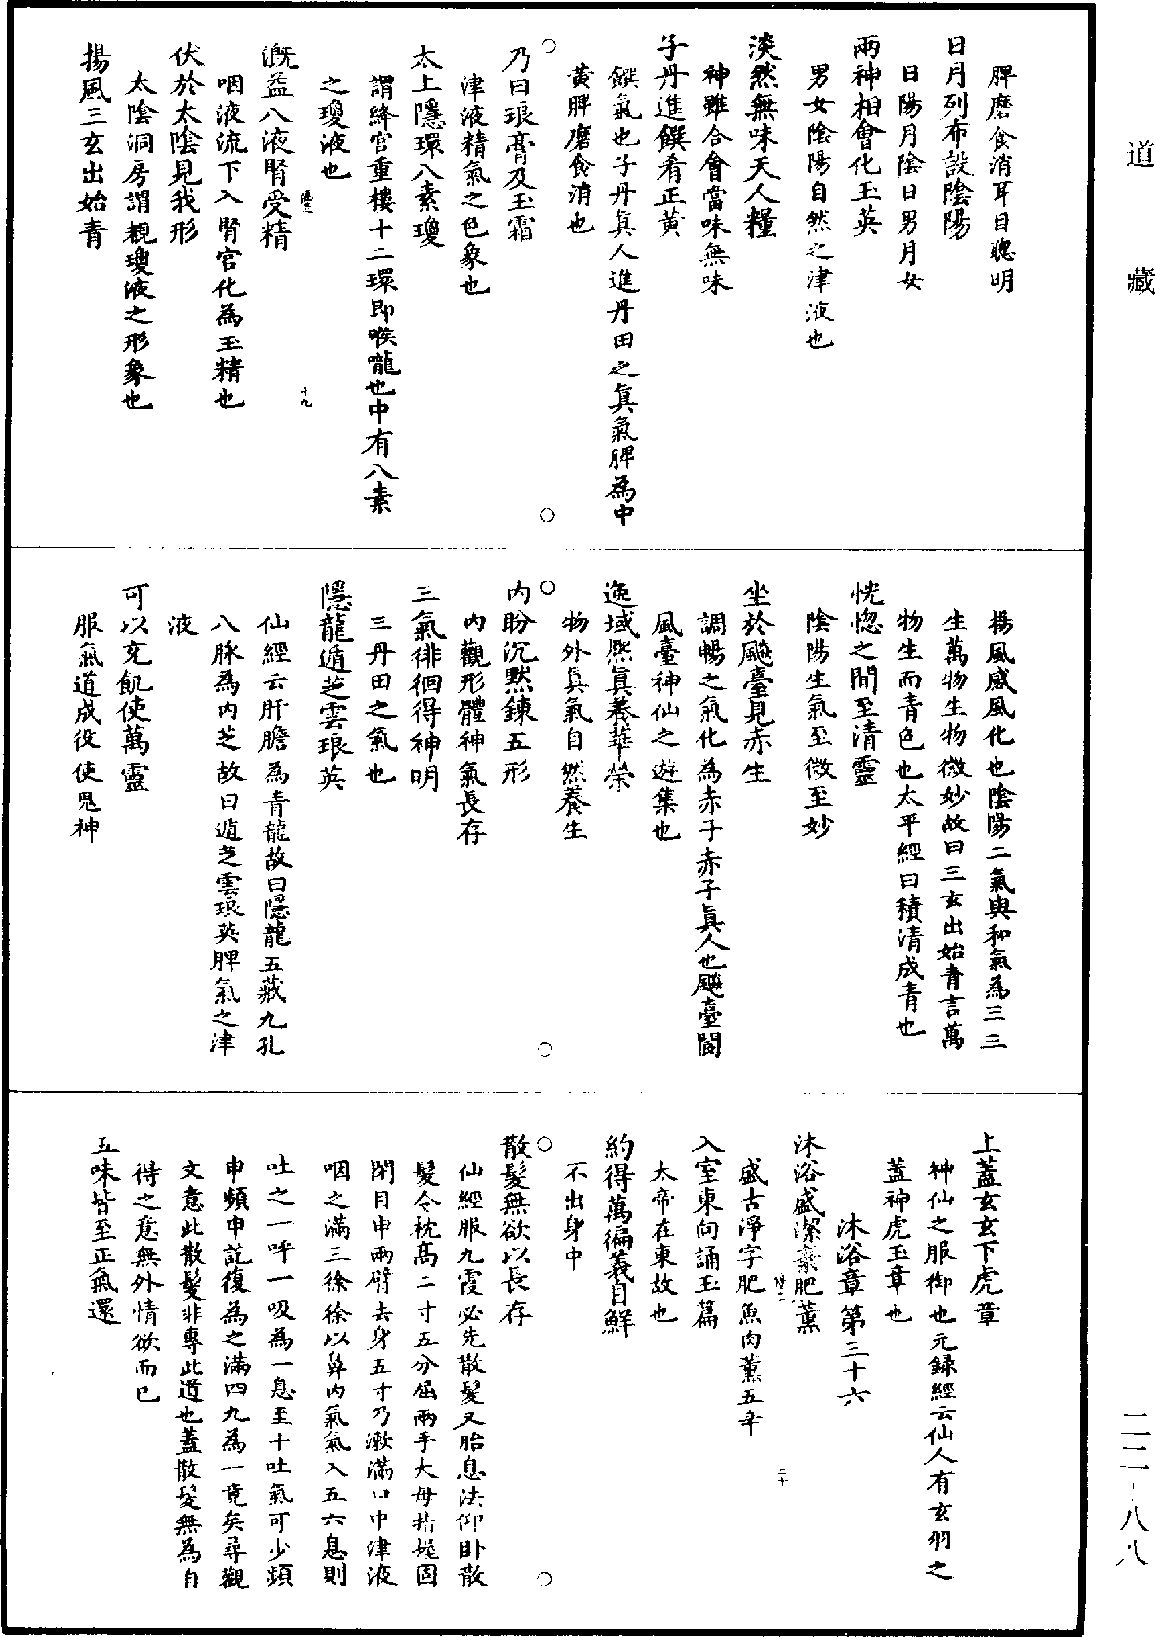 道藏
脾磨食消耳目聰明
日月列布設陰陽
日陽月陰日男月女
兩神相會化玉英
男女陰陽自然之津液也
淡然無味天人糧
神雖合會當味無味
子丹進饌肴正黃
饌氣也子丹真人進丹田之真氣脾為中
黃脾磨食消也
乃曰琅膏及玉霜
津液精氣之色象也
太上隱環八素瓊
謂絳宮重樓十二環即喉嚨也中有八素
之瓊液也
十九
溉益八液腎受精
咽液流下入腎宮化為玉精也
伏於太陰見我形
太陰洞房謂覩瓊液之形象也
揚風三玄出始青
揚風感風化也陰陽二氣與和氣為三三
生萬物生物微妙故曰三玄出始青言萬
物生而青色也太平經曰積清成青也
恍惚之間至清靈
陰陽生氣至微至妙
坐於飈臺見赤生
調暢之氣化為赤子赤子真人也飈臺閬
風臺神仙之遊集也
逸域熙真養華榮
物外真氣自然養生
內盼沉默鍊五形
內觀形體神氣長存
三氣徘徊得神明
三丹田之氣也
隱龍遁芝雲琅英
仙經云肝膽為青龍故曰隱龍五藏九孔
八脉為內芝故曰遁芝雲琅英脾氣之津
液
可以充飢使萬靈
服氣道成役使鬼神
上蓋玄玄下虎章
神仙之服御也元錄經云仙人有玄羽之
蓋神虎玉章也
沐浴章第三十六
沐浴盛潔棄肥薰
二十
盛古淨字肥魚肉薰五辛
入室東向誦玉篇
大帝在東故也
約得萬徧義自鮮
不出身中
散髮無欲以長存
仙經服九霞必先散髮又胎息法仰卧散
髮令枕高二寸五分屈兩手大母指握固
閉目申兩臂去身五寸乃漱滿口中津液
咽之滿三徐徐以鼻內氣氣入五六息則
吐之一呼一吸為一息至十吐氣可少頻
申頻申訖復為之滿四九為一竟矣尋觀
文意此散髮非專此道也蓋散髮無為自
得之意無外情欲而已
五味皆至正氣還
二二-八八